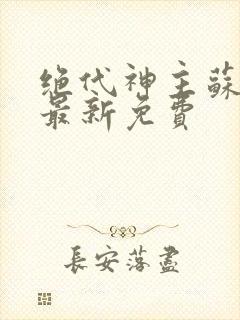 绝代神主蘇
最新免費
長安落盡